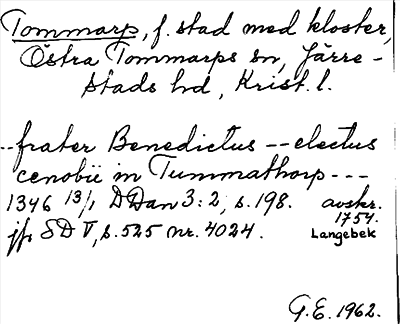 Tommarp, f. stad med kloster,
Östra Tommarps sn, Järre-
stads hd, Krist. l.
--frater Benedictus -- electus
cenobii in Tummathorp ---
1346 13/1 DDan 3:2, s. 198. avskr.
1754.
jfr SD V, s. 525 nr. 4024. Langebek
G.E. 1962.